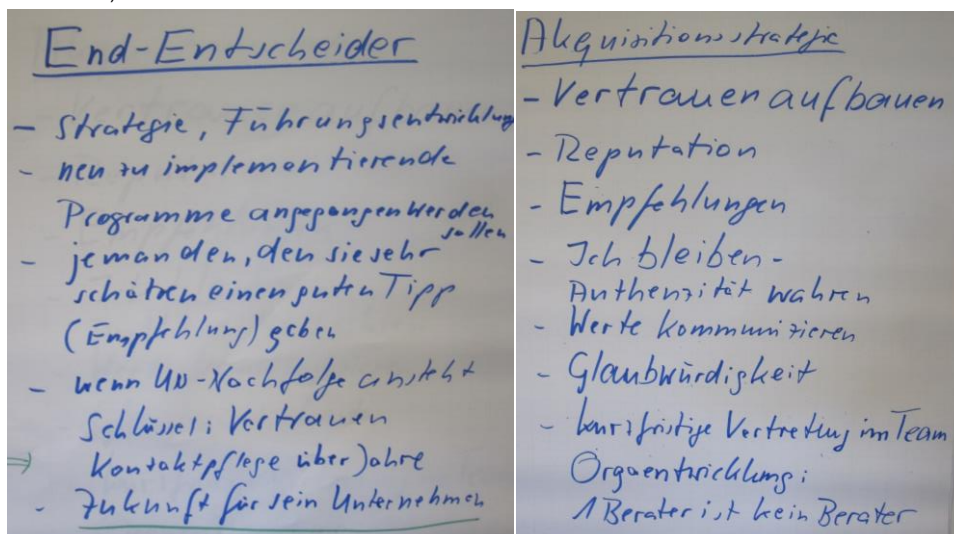 End-Entscheider
- Strategie, Führungsentwicklung
- neu zu implementierende
Programme angegangen werden
sollen
- jemanden, den sie sehr
schätzen einen guten Tipp
(Empfehlung) geben
- wenn UN-Nachfolge ansteht
Schlüssel: Vertrauen
⇒ Kontaktpflege über Jahre
- Zukunft für sein Unternehmen
Akquisitionsstrategie
- Vertrauen aufbauen
- Reputation
- Empfehlungen
- Ich bleiben -
Authenzität wahren
- Werte kommunizieren
- Glaubwürdigkeit
- kurzfristige Vertretung im Team
Orgaentwicklung:
1 Berater ist kein Berater